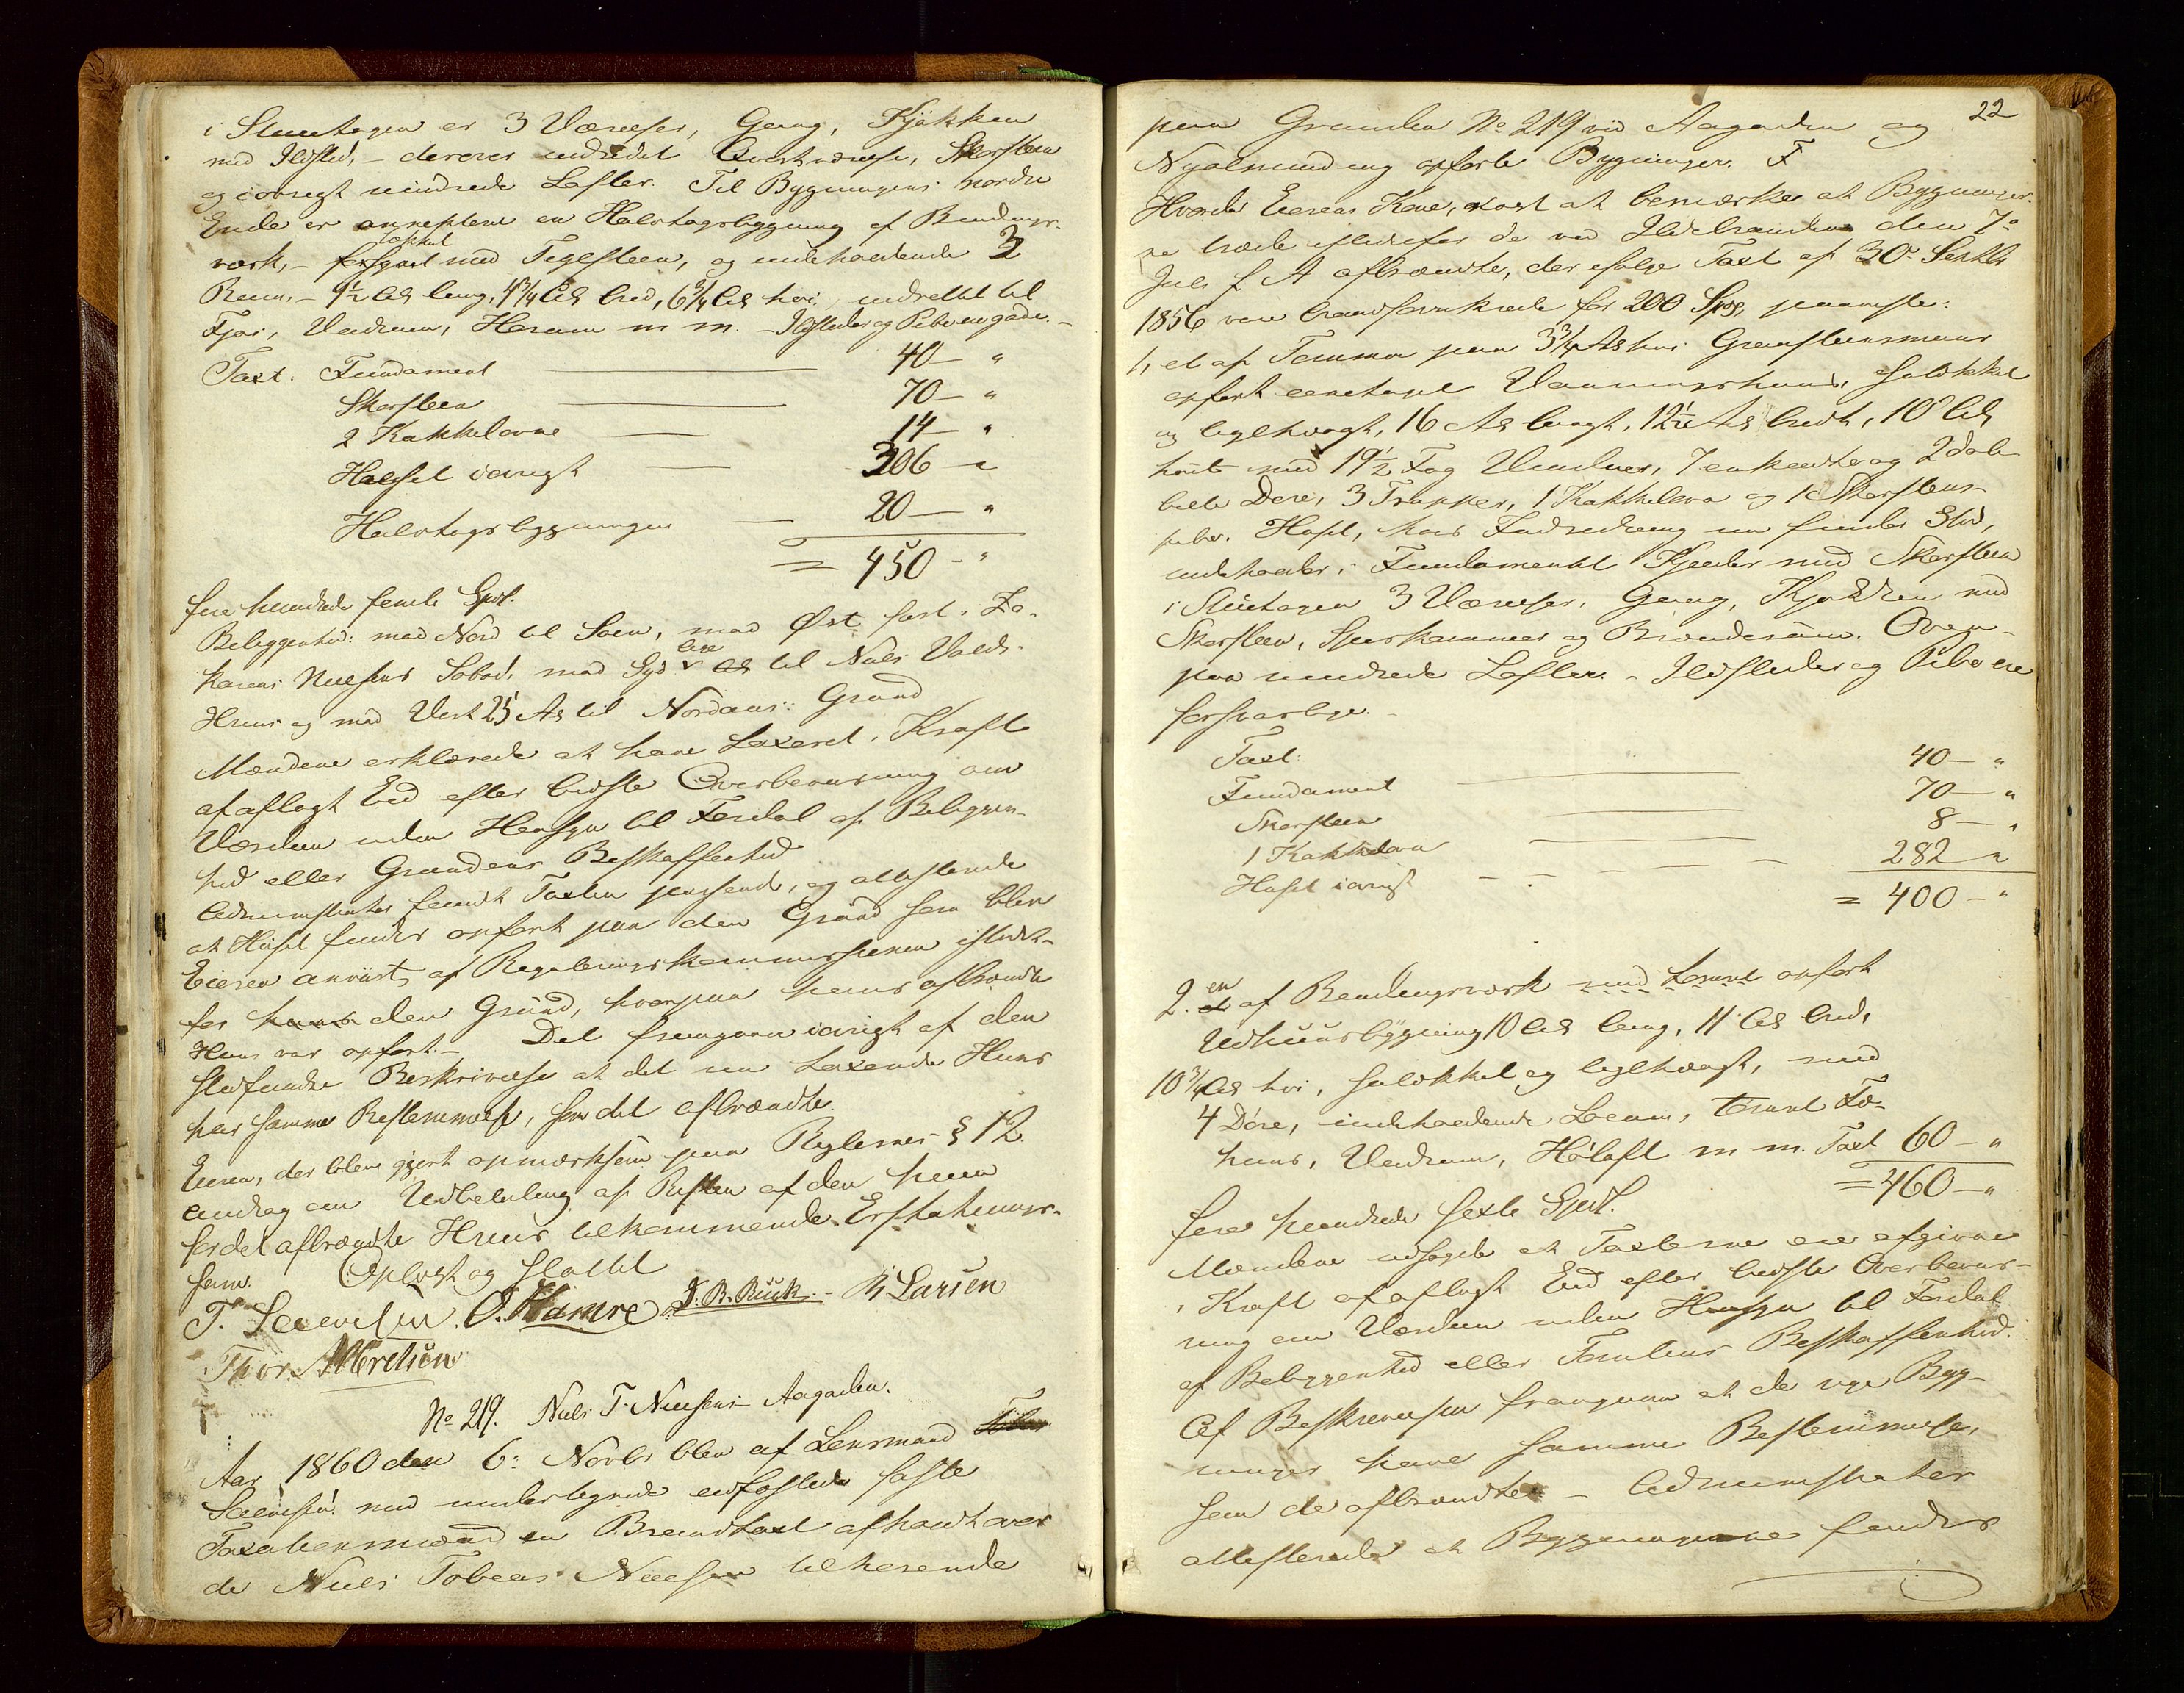 i Stueetagen er 3 Værelser, Gang, Kjøkken
med Ildsted, – derover indredet Qvistværelse, Skorsteen
og iøvrigt uindrede Lofter. Til Bygningens nordre
Ende er annekteret en Halvtagsbygning af Bindings-
værk, – tækket med Tegelsteen, og indeholdende 3
Rum, – 9½ Al lang, 4¾ Al bred, 6¼ Al høi, indrettet til
Fjøs, Vedrum, Hørum m m. – Ildsteder og Piber ere gode. –
Taxt. Fundament — 40 – "
Skorsteen — 70 – "
2 Kakkelovne — 14 – "
Huset iøvrigt — 306 – "
Halvtagsbygningen — 20 – "
= 450 – "
fire hundrede femti Spdl.
Beliggenhed: mod Nord til Søen, mod Øst fast i Za-
karias Nielsens Søbod, mod Syd til Niels Valds-
Huus og mod Vest 25 Al til Nordaas: Grund
Mændene erklærede at have taxeret i Kraft
af aflagt Eed efter bedste Overbeviisning om
Værdien uden Hensyn til Fordel af Beliggen-
hed eller Grundens Beskaffenhed
Administrator fandt Taxten passende, og attesterede
at Huset findes opført paa den Grund som blev
Eieren anviist af Reguleringskommissionen istedet-
for den Grund, hvorpaa hans afbrændte
Huus var opført. – Det fremgaar iøvrigt af den
stedfundne Beskrivelse at det nu taxerede Huus
har samme Bestemmelse, som det afbrændte.
Eieren, der blev gjort opmærksom paa Reglernes § 12
androg om Udbetaling af Resten af den ham
for det afbrændte Huus tilkommende Erstatnings-
sum. Oplæst og sluttet
T. Sævelsen. O. Hamre J. B. Buck. – N Larsen
Thor. Albretsen
No 219. Niels T. Nielsens Aagarden.
Aar 1860 den 6: Novbr blev af Lensmand
Sævelsen med undertegnede edfæstede faste
Taxationsmænd en Brandtaxt afholdt over
de Niels Tobias Nielsen tilhørende
22
paa Grunden No 219 ved Aagarden og
opførte Bygninger. F
Hvorda Eierens Kone, at bemærke at Bygninger-
ne træde istedetfor de ved Ildebranden den 7de
Juli f A afbrændte, der ifølge Taxt af 30te Septbr
1856 vare brandforsikrede for 200 Spd, paaviste:
1, et af Tømmer paa 3¾ Al høi Graasteensmuur
opført eenetages Vaaningshuus, selvkket
og teglhængt, 16 Al langt, 12½ Al bredt, 10 Al
høit med 19½ Fag Vinduer, 7 enkelte og 2 dob-
belte Døre, 3 Trapper, 1 Kakkelovn og 1 Skorsteens-
piber. Huset, hvis Indredning nu finder Sted,
indeholder i Fundamentet Kjelder med Skorsteen
i Stueetagen 3 Værelser, Gang, Kjøkken med
Skorsteen, Spiskammer og Brænderum. Oven-
paa uindrede Lofter. – Ildsteder og Piber ere
forsvarlige. –
Taxt:
Fundament — 40 – "
Skorsteen — 70 – "
1 Kakkelovn — 8 – "
Huset iøvrigt — 282 – "
= 400 – "
2. en af Bindingsværk med Tømret opført
Udhuusbygning 10 Al lang, 11 Al bred,
10¾ Al høi, selvkket og teglhængt, med
4 Døre, indeholdende Loerum, tømret Fæ-
huus, Vedrum, Høloft m m. Taxt 60 – "
= 460 – "
fire hundrede sexti Spdl.
Mændene udsagde at Taxterne ere afgivne
i Kraft af aflagt Eed efter bedste Overbeviis-
ning om Værdien uden Hensyn til Fordel
af Beliggenhed eller Tomtens Beskaffenhed.
Af Beskrivelsen fremgaar at de nye Byg-
ninger have samme Bestemmelse,
som de afbrændte. – Administrator
attesterede at Bygningerne findes